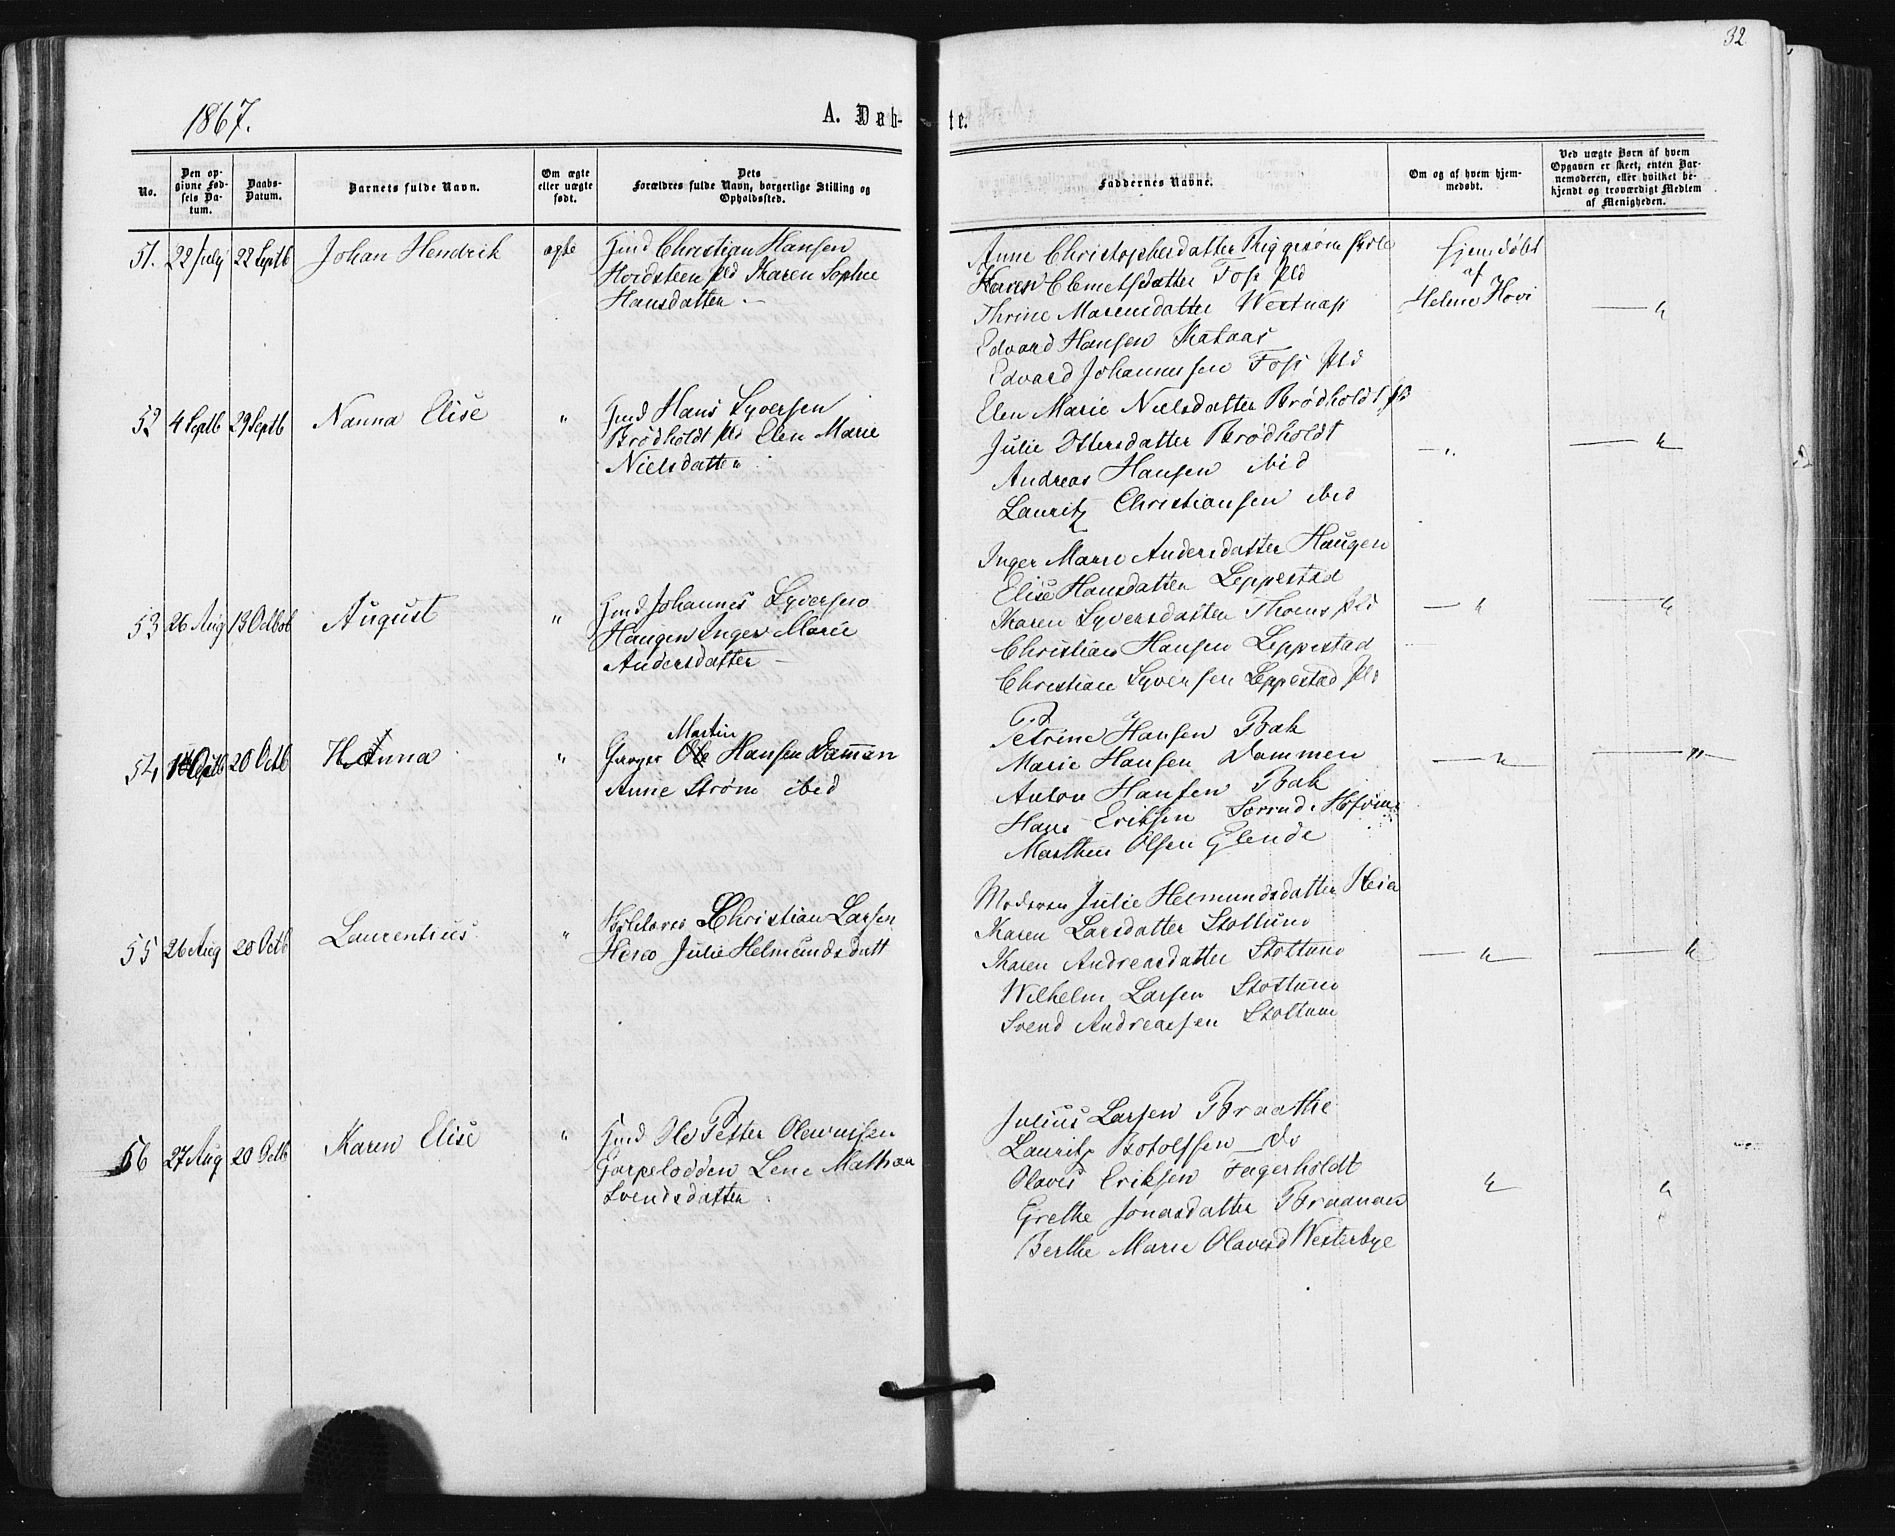 32
1867.
A. Døb-
te.
No.
Den op-
givne Fød-
sels Da-
tum.
Daabs-
Datum.
Barnets fulde Navn.
Om ægte
eller uægte
født.
Dets
Forældres fulde Navn, borgerlige Stilling og
Opholdssted.
Faddernes Navne.
Om og af hvem hjem-
medøbt.
Ved uægte Børn af hvem
Opgaven er skeet, enten Bar-
nemoderen, eller hvilket be-
kjendt og troværdigt Medlem
af Menigheden.
51. 22 July 22 Septb Johan Hendrik ægte
Gmd Christian Hansen
Hordsteen pld Karen Sophie
Hansdatter
Anne Christophersdatter
Karen Clemetsdatter Foss pld
Thrine Marensdatter Westnæss
Edvard Hansen
Edvard Johannessen Foss pld
Hjemdøbt
af
Helene Hovi
52 4 Septb 29 Septb Nanna Elise "
Gmd Hans Syversen
Brødholdt pld Elen Marie
Nielsdatter
Elen Marie Nielsdatter Brødholdt pld
Julie Ottersdatter Brødholdt
Andreas Hansen ibid
Lauritz Christiansen ibid
53 26 Aug 13 Octob August "
Gmd Johannes Syversen
Haugen Inger Marie
Andersdatter
Inger Marie Andersdatter Haugen
Elise Hansdatter Leppestad
Karen Syversdatter Thoens pld
Christian Hansen Leppestad
Christian Syversen Leppestad pld
54 Septb 20 Octb Hanna "
Martin
Ole Hansen Damen
Anne Strøm ibid
Petrine Hansen Bak
Marie Hansen Dammen
Anton Hansen Bak
Hans Eriksen
Marthin Olsen Glende
55 26 Aug 20 Octb Laurentius "
Christian Larsen
Heia Julie Helmundsdatt
Moderen Julie Helmundsdatter Heia
Karen Larsdatter Stottum
Karen Andreasdatter Stottum
Wilhelm Larsen Stottum
Svend Andreassen Stottum
56 27 Aug 20 Octb Karen Elise "
Gmd Ole Petter Olavessen
Garpelødden Lene Mathea
Svendsdatter
Julius Larsen Braathe
Lauritz Botolfsen do
Olaves Eriksen Fagerholdt
Grethe Jonasdatter Braanan
Berthe Marie Olavesd Westerbye